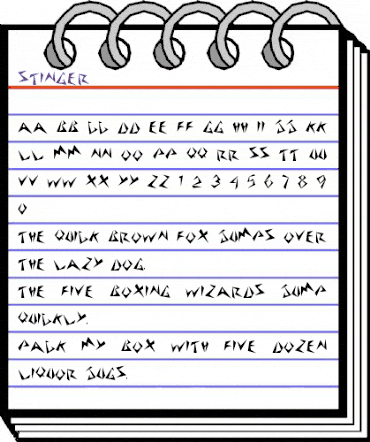 STINGER
AA BB CC DD EE FF GG HH II JJ KK
LL MM NN OO PP QQ RR SS TT UU
VV WW XX YY ZZ 1 2 3 4 5 6 7 8 9
0
THE QUICK BROWN FOX JUMPS OVER
THE LAZY DOG.
THE FIVE BOXING WIZARDS JUMP
QUICKLY.
PACK MY BOX WITH FIVE DOZEN
LIQUOR JUGS.